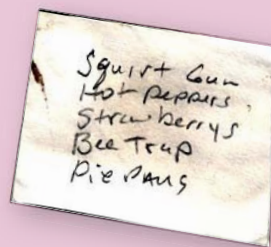 Squirt Gun
Hot Peppers
Strawberrys
Bee Trap
Pie Pans